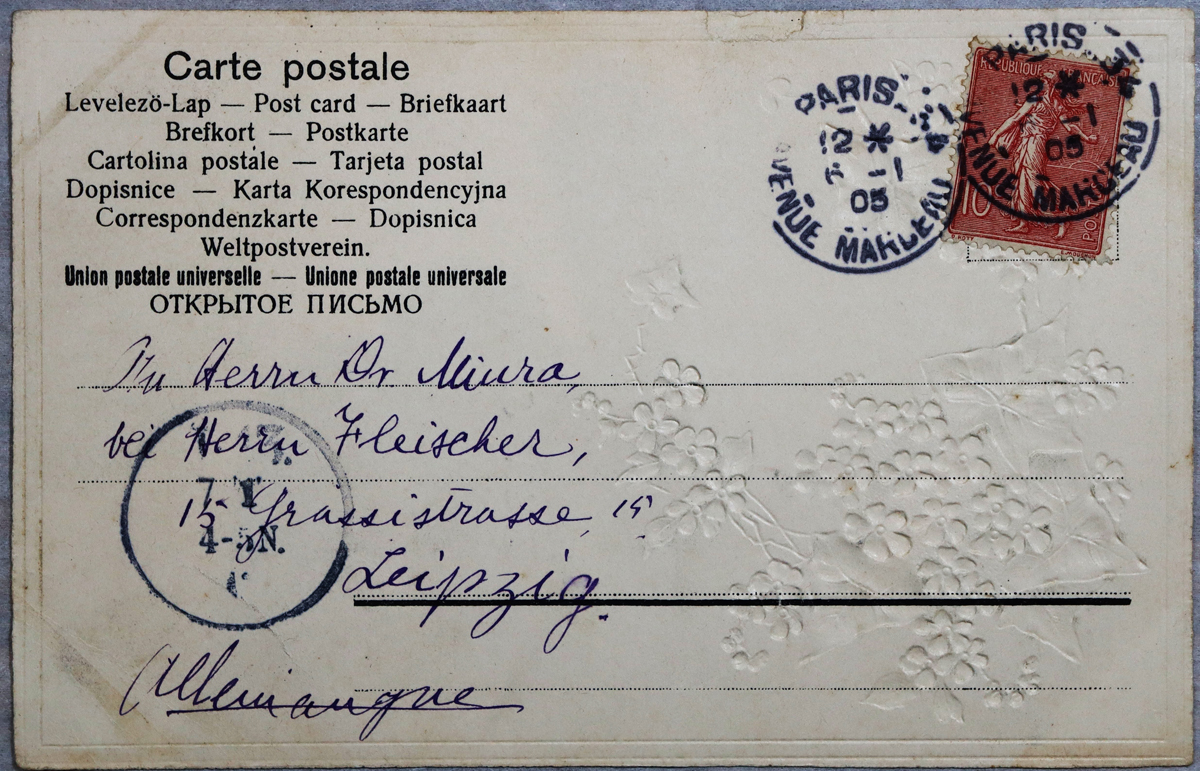 Carte postale
Levelezö-Lap — Post card — Briefkaart
Brefkort — Postkarte
Cartolina postale — Tarjeta postal
Dopisnice — Karta Korespondencyjna
Correspondenzkarte — Dopisnica
Weltpostverein.
Union postale universelle — Unione postale universale
ОТКРЫТОЕ ПИСЬМО
PARIS
12 *
-1
05
AVENUE MARCEAU
PARIS
12 *
-1
05
AVENUE MARCEAU
RÉPUBLIQUE FRANÇAISE
10
Herrn Dr Miura,
bei Herrn Fleischer,
15 Grassistrasse, 15
Leipzig.
Allemangne
7.
4-5N.